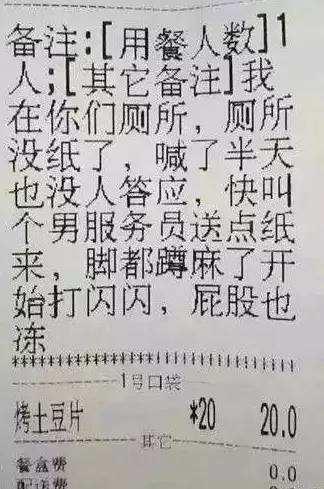 备注:[用餐人数]1
人;[其它备注]我
在你们厕所，厕所
没纸了，喊了半天
也没人答应，快叫
个男服务员送点纸
来，脚都蹲麻了开
始打闪闪，屁股也
冻
********************************
1号口袋
烤土豆片 *20 20.0
其它
餐盒费 0.0
配送费